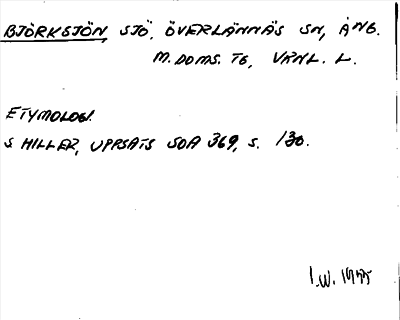 BJÖRKSJÖN, SJÖ, ÖVERLÄNNÄS SN, ÅNG.
M. DOMS. TG, VRNL. L.
ETYMOLOGI.
S HILLER, UPPSATS SOA 369, S. 130.
I.W. 1975